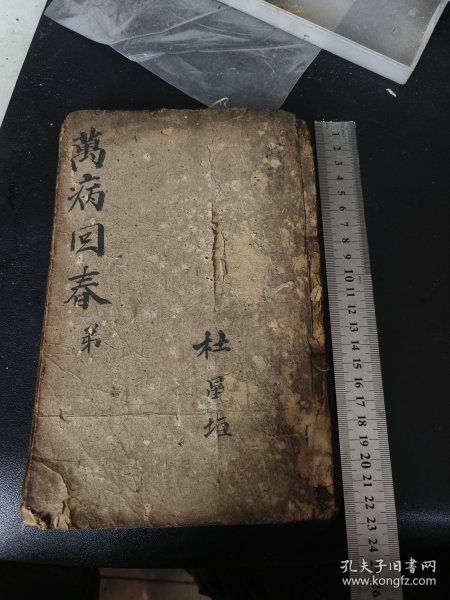 萬病回春
第
杜星垣
1
2
3
4
5
6
7
8
9
10
11
12
13
14
15
16
17
18
19
20
21
22
23
24
孔夫子旧书网
www.kongfz.com